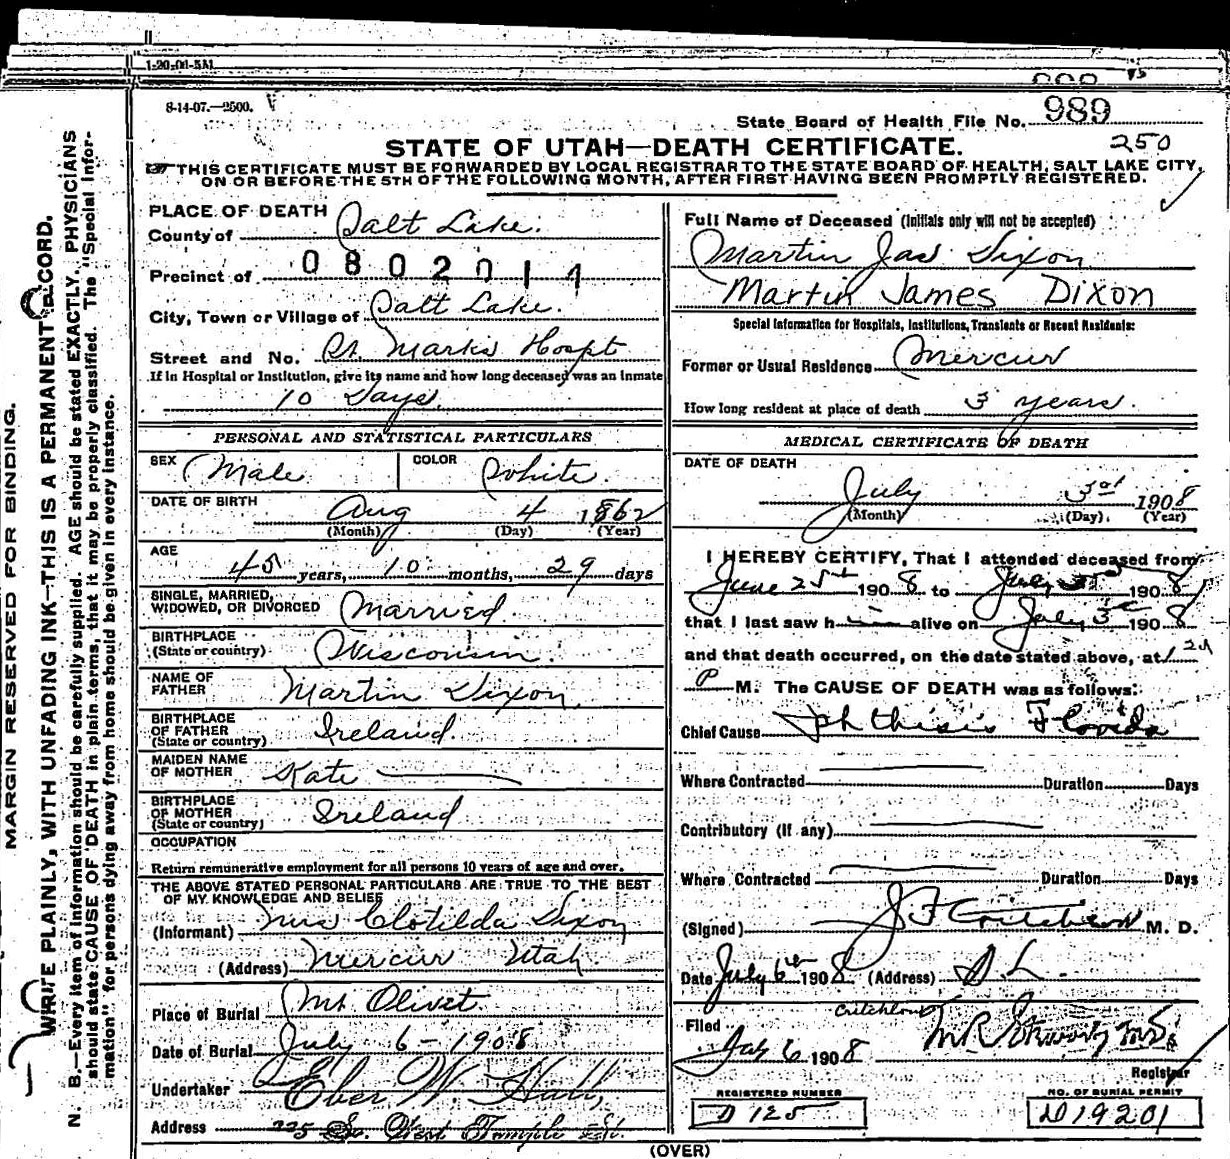 1-20-06-5M
8-14-07.—2500.
State Board of Health File No. 989
250
STATE OF UTAH—DEATH CERTIFICATE.
THIS CERTIFICATE MUST BE FORWARDED BY LOCAL REGISTRAR TO THE STATE BOARD OF HEALTH, SALT LAKE CITY,
ON OR BEFORE THE 5TH OF THE FOLLOWING MONTH, AFTER FIRST HAVING BEEN PROMPTLY REGISTERED.
MARGIN RESERVED FOR BINDING.
WRITE PLAINLY, WITH UNFADING INK—THIS IS A PERMANENT RECORD.
N. B.—Every item of information should be carefully supplied. AGE should be stated EXACTLY. PHYSICIANS
should state CAUSE OF DEATH in plain terms, that it may be properly classified. The "Special Infor-
mation" for persons dying away from home should be given in every instance.
PLACE OF DEATH
County of Salt Lake.
Precinct of 0802011
City, Town or Village of Salt Lake.
Street and No. St. Marks Hospt
If in Hospital or Institution, give its name and how long deceased was an inmate
10 Days.
PERSONAL AND STATISTICAL PARTICULARS
SEX Male COLOR White
DATE OF BIRTH Aug 4 1862
(Month) (Day) (Year)
AGE
45 years, 10 months, 29 days
SINGLE, MARRIED,
WIDOWED, OR DIVORCED Married.
BIRTHPLACE
(State or country) Wisconsin.
NAME OF
FATHER Martin Dixon
BIRTHPLACE
OF FATHER Ireland.
(State or country)
MAIDEN NAME
OF MOTHER Kate
BIRTHPLACE
OF MOTHER Ireland
(State or country)
OCCUPATION
Return remunerative employment for all persons 10 years of age and over.
THE ABOVE STATED PERSONAL PARTICULARS ARE TRUE TO THE BEST
OF MY KNOWLEDGE AND BELIEF
(Informant) Mrs Clotilda Dixon
(Address) Mercur Utah.
Place of Burial Mt Olivet.
Date of Burial July 6-1908
Undertaker Eber W. Hall,
Address 225 So. West Temple St.
Full Name of Deceased (Initials only will not be accepted)
Martin Jas Dixon
Martin James Dixon
Special Information for Hospitals, Institutions, Transients or Recent Residents:
Former or Usual Residence Mercur
How long resident at place of death 3 years.
MEDICAL CERTIFICATE OF DEATH
DATE OF DEATH
July 3rd 1908
(Month) (Day) (Year)
I HEREBY CERTIFY, That I attended deceased from
June 25th 1908 to July 3rd 1908
that I last saw him alive on July 3 1908
and that death occurred, on the date stated above, at
P M. The CAUSE OF DEATH was as follows:
Chief Cause Phthisis Florida
Where Contracted Duration Days
Contributory (if any)
Where Contracted Duration Days
(Signed) J F Critchlow M. D.
Date July 6th 1908 (Address) S L.
Critchlow
Filed July 6 1908
Registrar
REGISTERED NUMBER
D 125
NO. OF BURIAL PERMIT
D19201
(OVER)